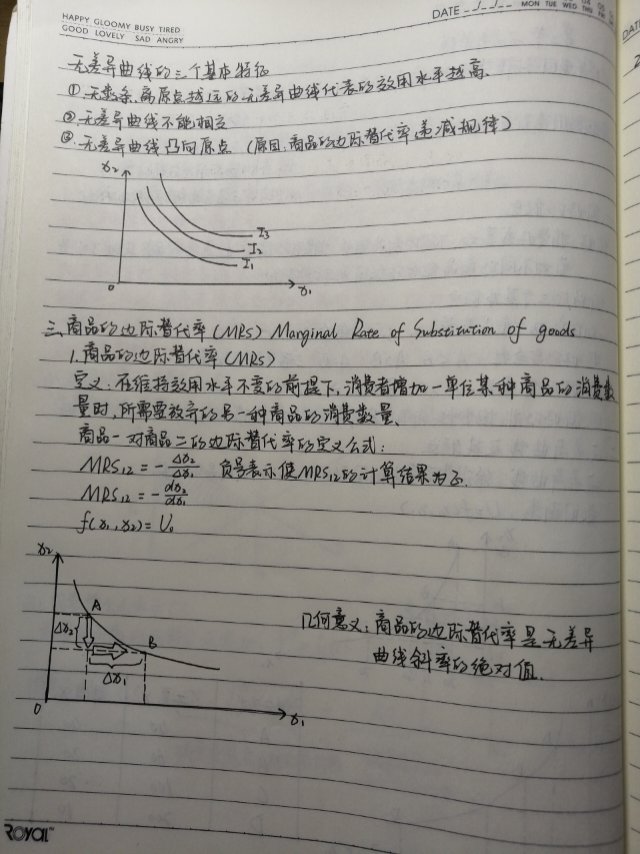 HAPPY GLOOMY BUSY TIRED
GOOD LOVELY SAD ANGRY
DATE _/_/_
MON TUE WED THU FRI
无差异曲线的三个基本特征
①.无数条,离原点越远的无差异曲线代表的效用水平越高.
②.无差异曲线不能相交
③.无差异曲线凸向原点 (原因:商品的边际替代率递减规律)
x₂
I₃
I₂
I₁
0
x₁
三.商品的边际替代率(MRS) Marginal Rate of Substitution of goods
1.商品的边际替代率(MRS)
定义:在维持效用水平不变的前提下,消费者增加一单位某种商品的消费数
量时,所需要放弃的另一种商品的消费数量.
商品一对商品二的边际替代率的定义公式:
MRS₁₂ = -Δx₂/Δx₁ 负号表示使MRS₁₂的计算结果为正.
MRS₁₂ = -dx₂/dx₁
f(x₁,x₂)=U₀
x₂
A
Δx₂
B
Δx₁
0
x₁
几何意义:商品的边际替代率是无差异
曲线斜率的绝对值.
ROYAL